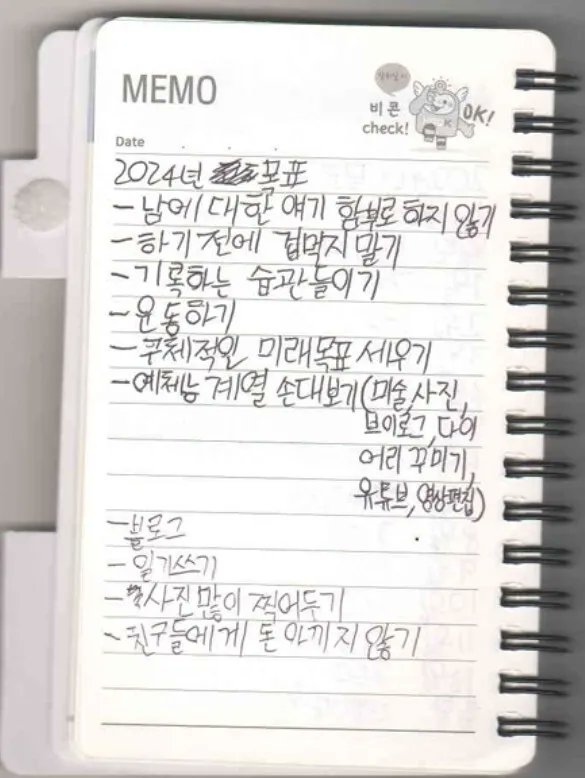 MEMO
비 콘
check!
OK!
K
Date
2024년 목표
- 남에 대한 얘기 함부로 하지 않기
- 하기 전에 겁먹지 말기
- 기록하는 습관들이기
- 운동하기
- 구체적인 미래목표 세우기
- 예체능 계열 손대보기(미술,사진,
브이로그,다이
어리 꾸미기,
유튜브,영상편집)
- 블로그
- 일기쓰기
- 사진 많이 찍어두기
- 친구들에게 돈 아끼지 않기